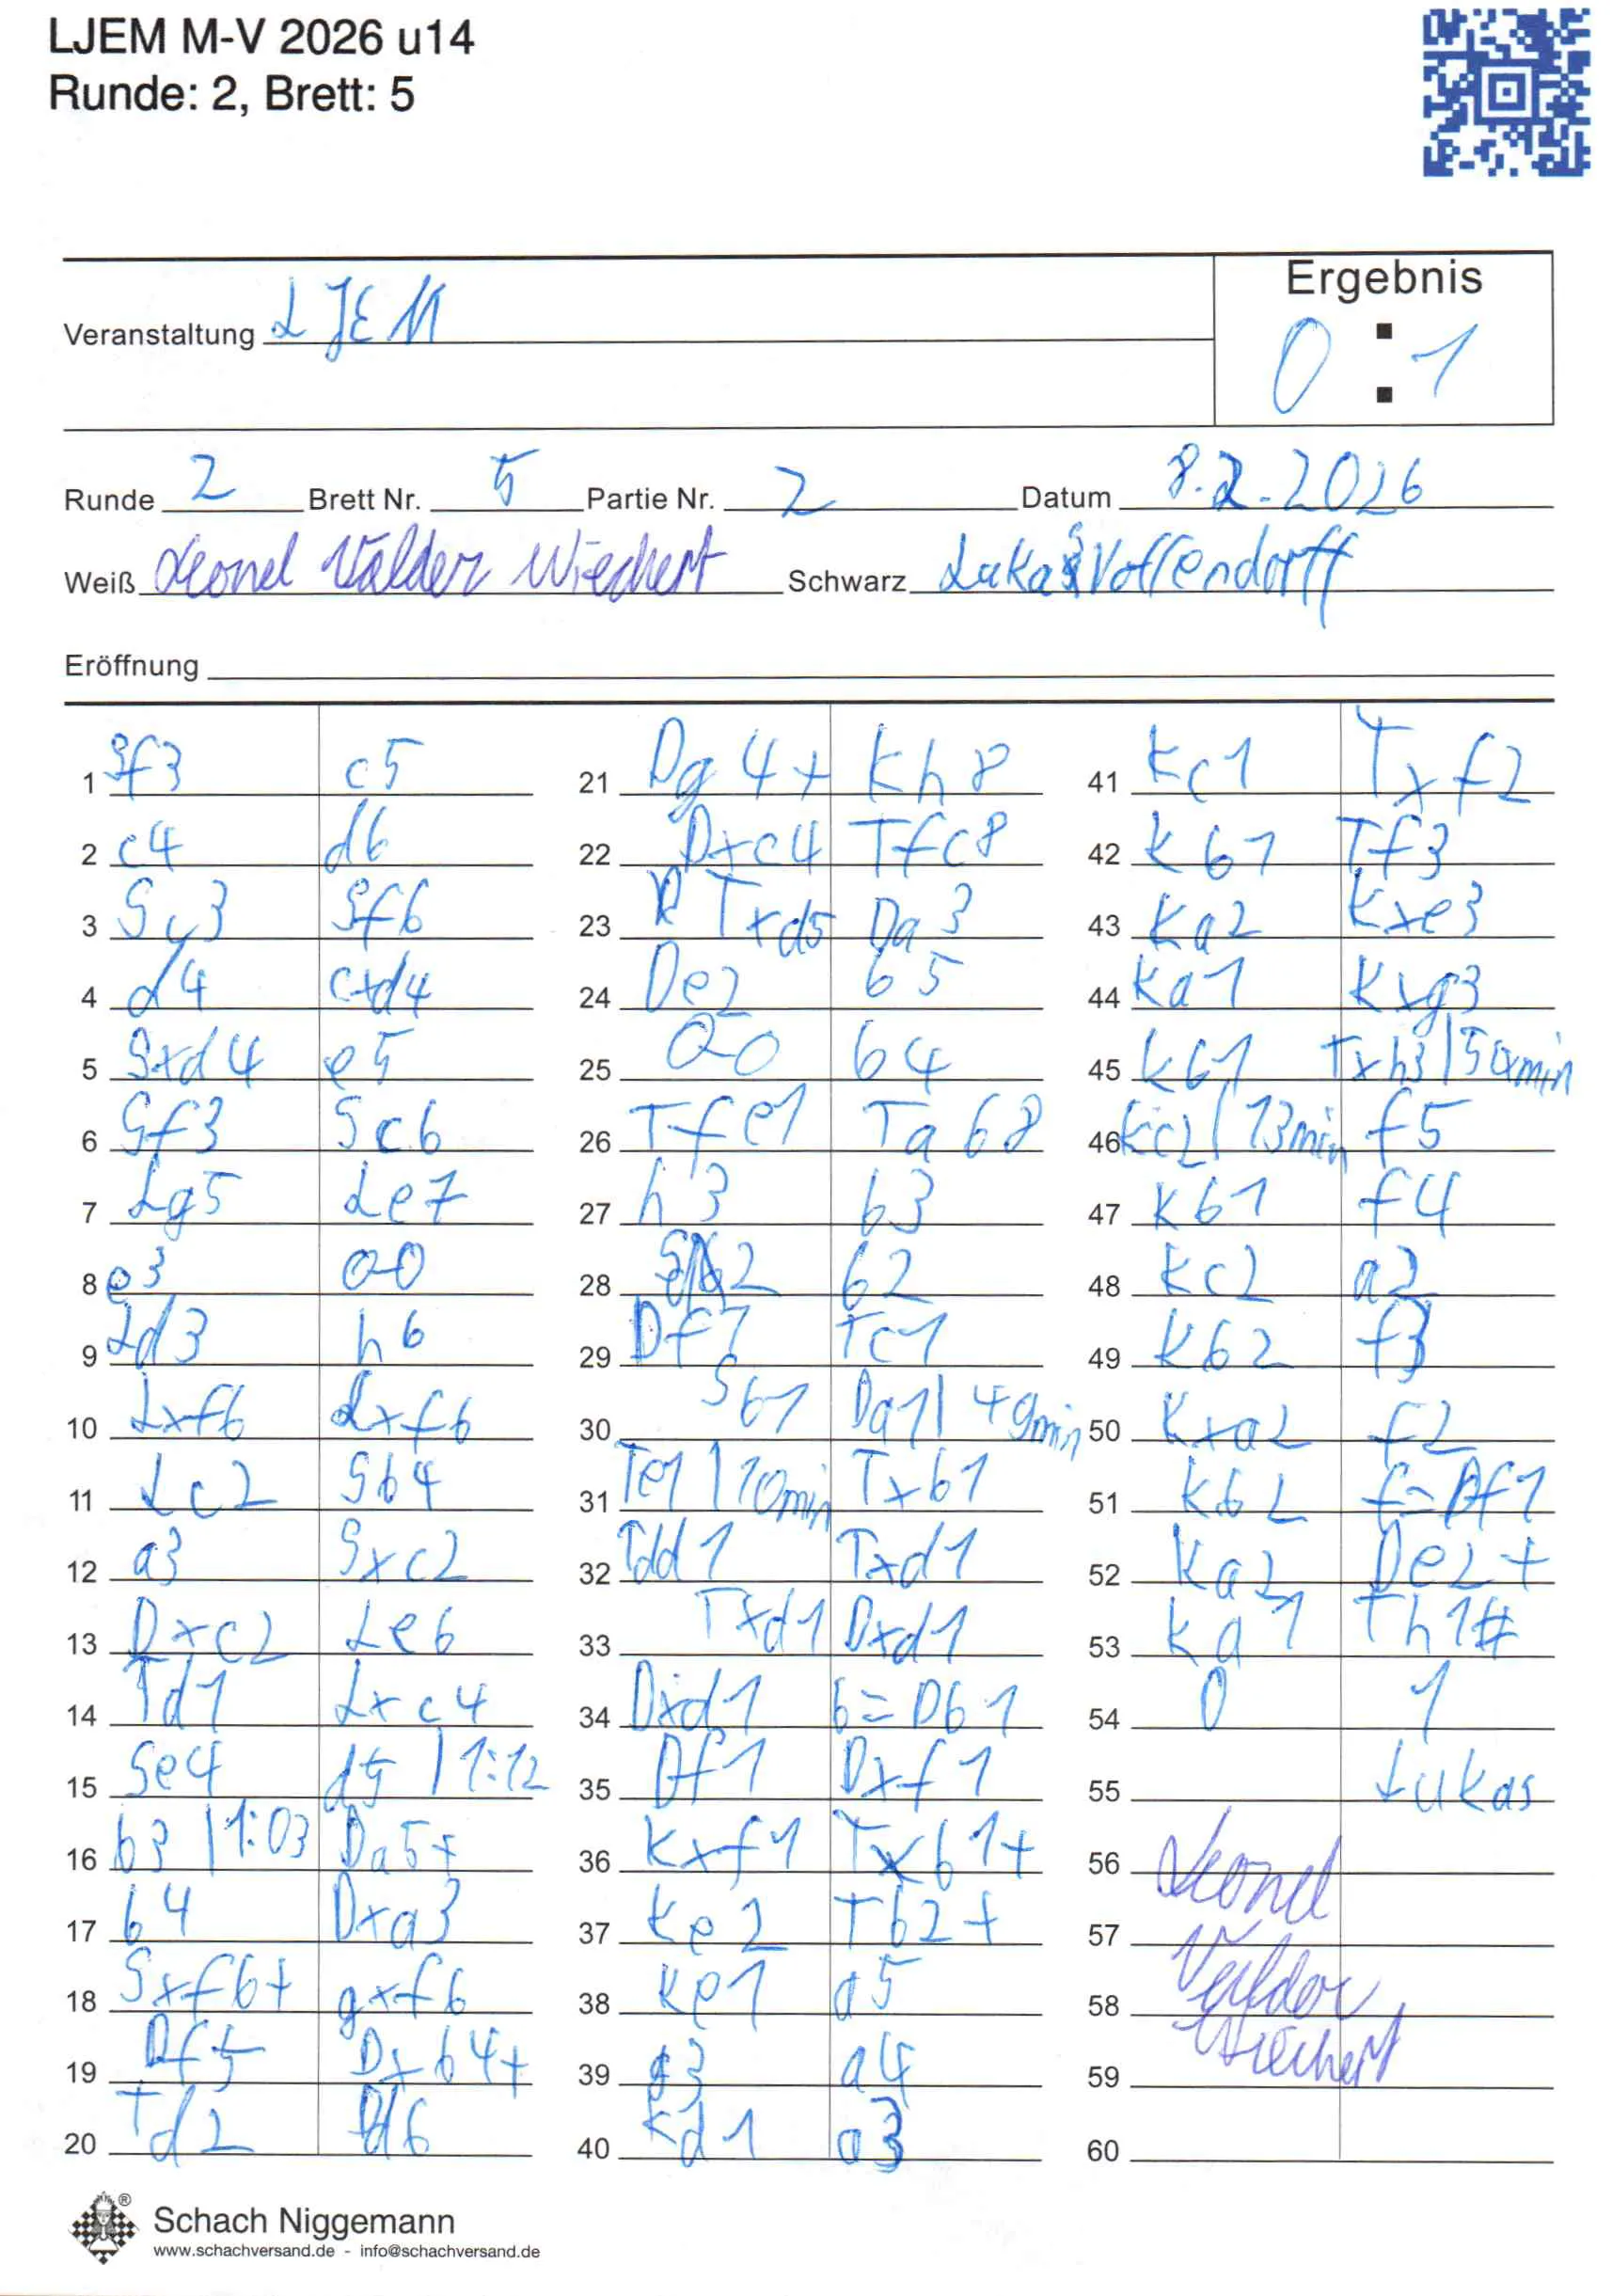 LJEM M-V 2026 u14
Runde: 2, Brett: 5
Veranstaltung LJEM
Ergebnis
0 : 1
Runde 2 Brett Nr. 5 Partie Nr. 2 Datum 8.2.2026
Weiß Leonel Valder Wiechert Schwarz Lukas Voffendorff
Eröffnung
1 Sf3 c5
2 c4 d6
3 Sc3 Sf6
4 d4 cxd4
5 Sxd4 e5
6 Sf3 Sc6
7 Lg5 Le7
8 e3 0-0
9 Ld3 h6
10 Lxf6 Lxf6
11 Lc2 Sb4
12 a3 Sxc2
13 Dxc2 Le6
14 Td1 Lxc4
15 Se4 d5 | 1:12
16 b3 | 1:03 Da5+
17 b4 Dxa3
18 Sxf6+ gxf6
19 Df5 Dxb4+
20 Td2 Dd6
21 Dg4+ Kh8
22 Dxc4 Tfc8
23 Txd5 Da3
24 De2 b5
25 0-0 b4
26 Tfe1 Tab8
27 h3 b3
28 b2
29 Df1 Tc1
30 Sb1 Da1 | 49min
31 Te1 | 10min Txb1
32 Tdd1 Txd1
33 Txd1 Dxd1
34 Dxd1 b=Db1
35 Df1 Dxf1
36 Kxf1 Txb1+
37 Ke2 Tb2+
38 Ke1 a5
39 g3 a4
40 Kd1 a3
41 Kc1 Txf2
42 Kb1 Tf3
43 Ka2 Kxe3
44 Ka1 Kxg3
45 Kb1 Txh3 | 50min
46 Kc2 | 13min f5
47 Kb1 f4
48 Kc2 a2
49 Kb2 f3
50 Kxa2 f2
51 Kb2 f=Df1
52 Ka2 De2+
53 Ka1 Th1#
54 0 1
55 Lukas
56 Leonel
57 Valder
58 Wiechert
59
60
Schach Niggemann
www.schachversand.de - info@schachversand.de